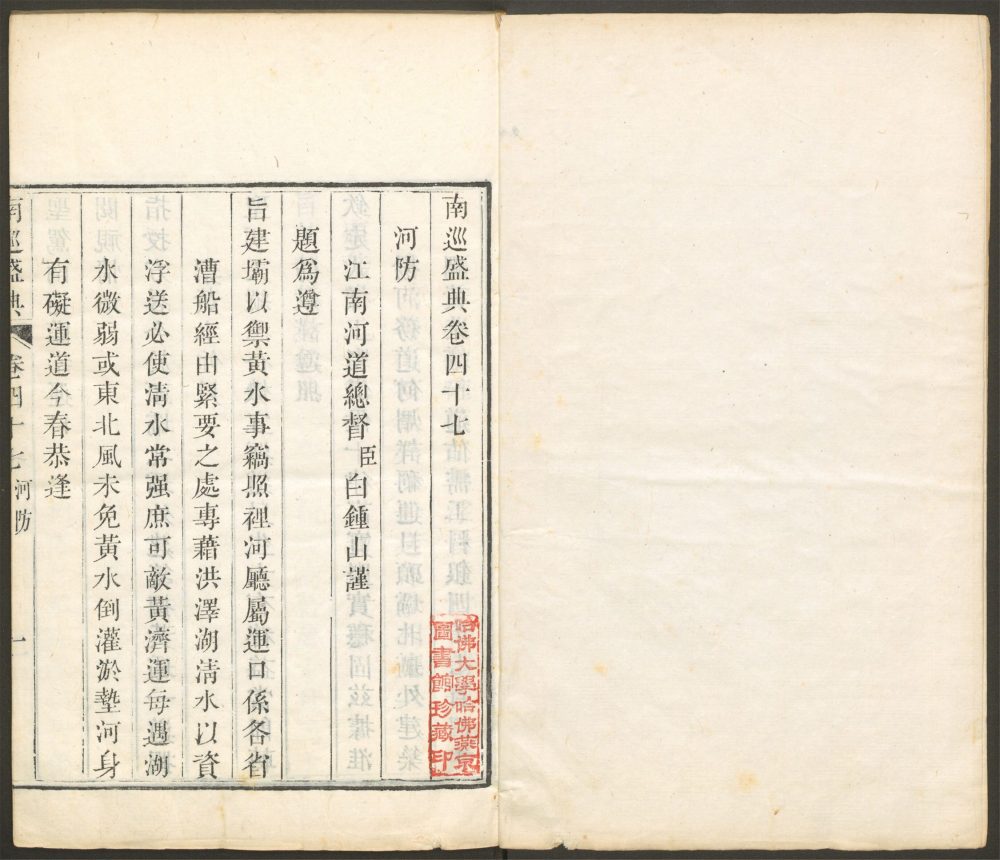 南巡盛典卷四十七
河防
江南河道總督臣白鍾山謹
題爲遵
旨建壩以禦黃水事竊照裡河廳屬運口係各省
漕船經由緊要之處專藉洪澤湖清水以資
浮送必使清水常强庶可敵黃濟運每遇湖
水微弱或東北風未免黃水倒灌淤墊河身
有礙運道今春恭逢
南巡盛典 卷四十七 河防 一
哈佛大學哈佛燕京
圖書館珍藏印